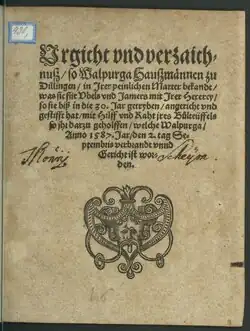 Urgicht vnd verzaich-
nuß / so Walpurga Haußmännen zu
Dillingen / in Irer peinlichen Marter bekandt /
was sie für Vbels vnd Jamers mit Irer Hexerey /
so sie biß in die 30. Jar getryben / angericht vnd
gestifft hat / mit Hilff vnd Raht jres Bůlteüffels
so jhr darzů geholffen / welche Walpurga /
Anno 1587. Jar / den 2. tag Se-
ptembris verbrandt vnnd
Gericht ist wor-
den.